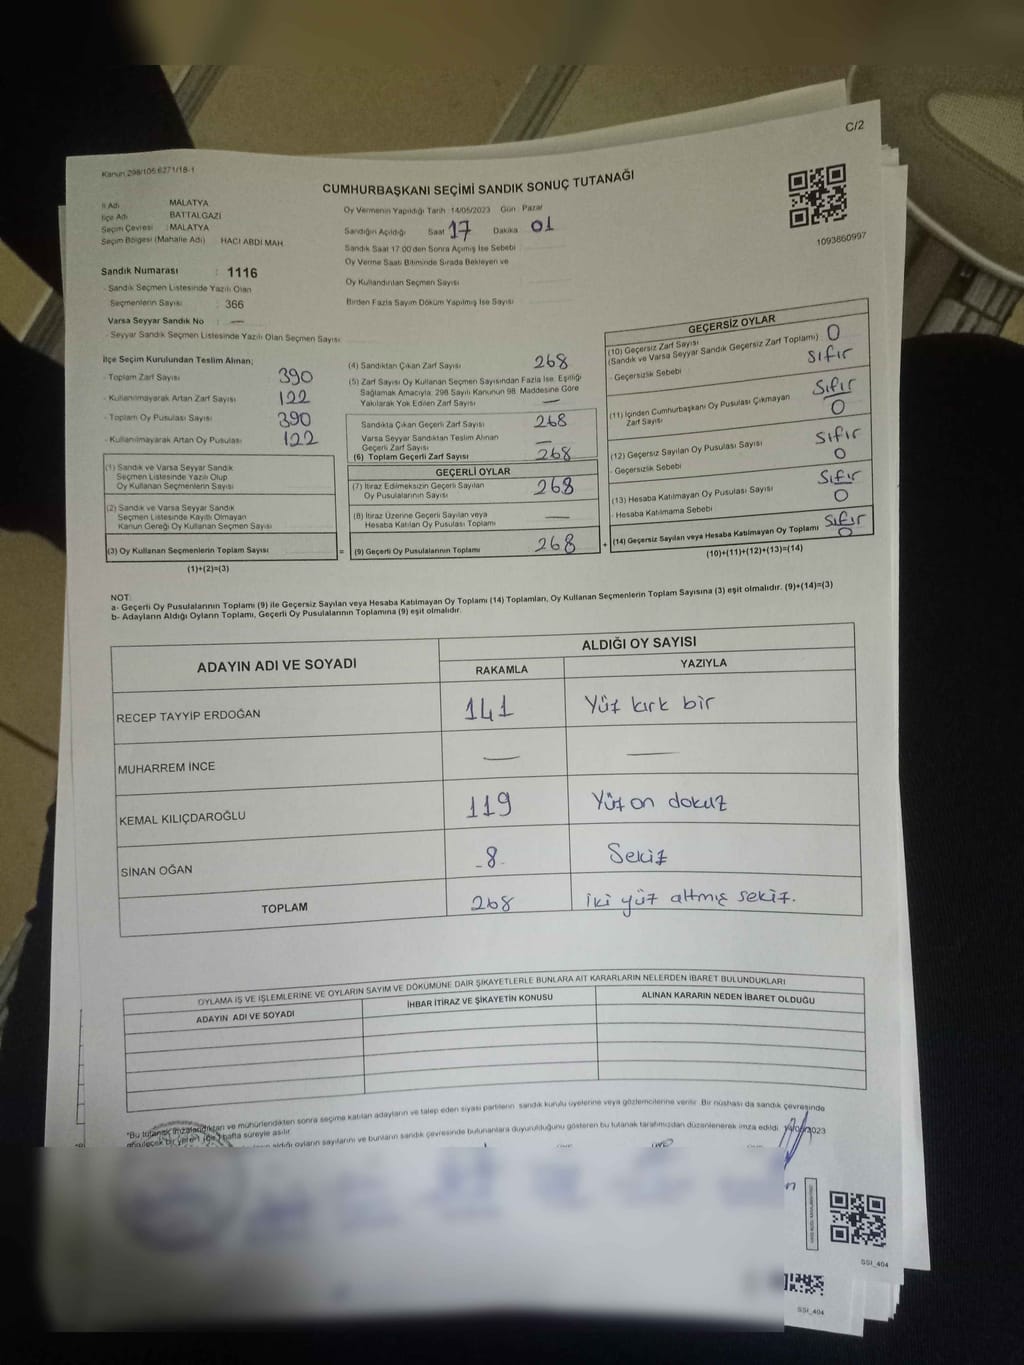 C/2
Kanun 298/105.6271/18-1
CUMHURBAŞKANI SEÇİMİ SANDIK SONUÇ TUTANAĞI
1093860997
İl Adı MALATYA
İlçe Adı BATTALGAZİ
Seçim Çevresi : MALATYA
Seçim Bölgesi (Mahalle Adı) HACI ABDİ MAH
Oy Vermenin Yapıldığı Tarih 14/05/2023 Gün : Pazar
Sandığın Açıldığı Saat 17 Dakika 01
Sandık Saat 17:00'den Sonra Açılmış İse Sebebi
Oy Verme Saati Bitiminde Sırada Bekleyen ve
Oy Kullandırılan Seçmen Sayısı
Birden Fazla Sayım Döküm Yapılmış İse Sayısı
Sandık Numarası : 1116
- Sandık Seçmen Listesinde Yazılı Olan
Seçmenlerin Sayısı : 366
Varsa Seyyar Sandık No : —
- Seyyar Sandık Seçmen Listesinde Yazılı Olan Seçmen Sayısı:
İlçe Seçim Kurulundan Teslim Alınan;
- Toplam Zarf Sayısı 390
- Kullanılmayarak Artan Zarf Sayısı 122
- Toplam Oy Pusulası Sayısı 390
- Kullanılmayarak Artan Oy Pusulası 122
(1) Sandık ve Varsa Seyyar Sandık
Seçmen Listesinde Yazılı Olup
Oy Kullanan Seçmenlerin Sayısı
(2) Sandık ve Varsa Seyyar Sandık
Seçmen Listesinde Kayıtlı Olmayan
Kanun Gereği Oy Kullanan Seçmen Sayısı
(3) Oy Kullanan Seçmenlerin Toplam Sayısı
(1)+(2)=(3)
(4) Sandıktan Çıkan Zarf Sayısı 268
(5) Zarf Sayısı Oy Kullanan Seçmen Sayısından Fazla İse, Eşitliği
Sağlamak Amacıyla, 298 Sayılı Kanunun 98. Maddesine Göre
Yakılarak Yok Edilen Zarf Sayısı —
Sandıkta Çıkan Geçerli Zarf Sayısı 268
Varsa Seyyar Sandıktan Teslim Alınan
Geçerli Zarf Sayısı —
(6) Toplam Geçerli Zarf Sayısı 268
GEÇERLİ OYLAR
(7) İtiraz Edilmeksizin Geçerli Sayılan
Oy Pusulalarının Sayısı 268
(8) İtiraz Üzerine Geçerli Sayılan veya
Hesaba Katılan Oy Pusulası Toplamı —
= (9) Geçerli Oy Pusulalarının Toplamı 268
GEÇERSİZ OYLAR
(10) Geçersiz Zarf Sayısı 0
(Sandık ve Varsa Seyyar Sandık Geçersiz Zarf Toplamı)
- Geçersizlik Sebebi Sıfır
(11) İçinden Cumhurbaşkanı Oy Pusulası Çıkmayan Sıfır
Zarf Sayısı 0
(12) Geçersiz Sayılan Oy Pusulası Sayısı Sıfır
- Geçersizlik Sebebi 0
(13) Hesaba Katılmayan Oy Pusulası Sayısı Sıfır
- Hesaba Katılmama Sebebi 0
+ (14) Geçersiz Sayılan veya Hesaba Katılmayan Oy Toplamı Sıfır 0
(10)+(11)+(12)+(13)=(14)
NOT:
a- Geçerli Oy Pusulalarının Toplamı (9) ile Geçersiz Sayılan veya Hesaba Katılmayan Oy Toplamı (14) Toplamları, Oy Kullanan Seçmenlerin Toplam Sayısına (3) eşit olmalıdır. (9)+(14)=(3)
b- Adayların Aldığı Oyların Toplamı, Geçerli Oy Pusulalarının Toplamına (9) eşit olmalıdır.
ADAYIN ADI VE SOYADI ALDIĞI OY SAYISI
RAKAMLA YAZIYLA
RECEP TAYYİP ERDOĞAN 141 Yüz kırk bir
MUHARREM İNCE — —
KEMAL KILIÇDAROĞLU 119 Yüz on dokuz
SİNAN OĞAN -8- Sekiz
TOPLAM 268 İki yüz altmış sekiz.
OYLAMA İŞ VE İŞLEMLERİNE VE OYLARIN SAYIM VE DÖKÜMÜNE DAİR ŞİKAYETLERLE BUNLARA AİT KARARLARIN NELERDEN İBARET BULUNDUKLARI
ADAYIN ADI VE SOYADI İHBAR İTİRAZ VE ŞİKAYETİN KONUSU ALINAN KARARIN NEDEN İBARET OLDUĞU
*Bu tutanak imzalandıktan ve mühürlendikten sonra seçime katılan adayların ve talep eden siyasi partilerin sandık kurulu üyelerine veya gözlemcilerine verilir. Bir nüshası da sandık çevresinde
hafta süreyle asılır.
aldığı oyların sayılarını ve bunların sandık çevresinde bulunanlara duyurulduğunu gösteren bu tutanak tarafımızdan düzenlenerek imza edildi. 14/05/2023
SSI_404
SSI_404